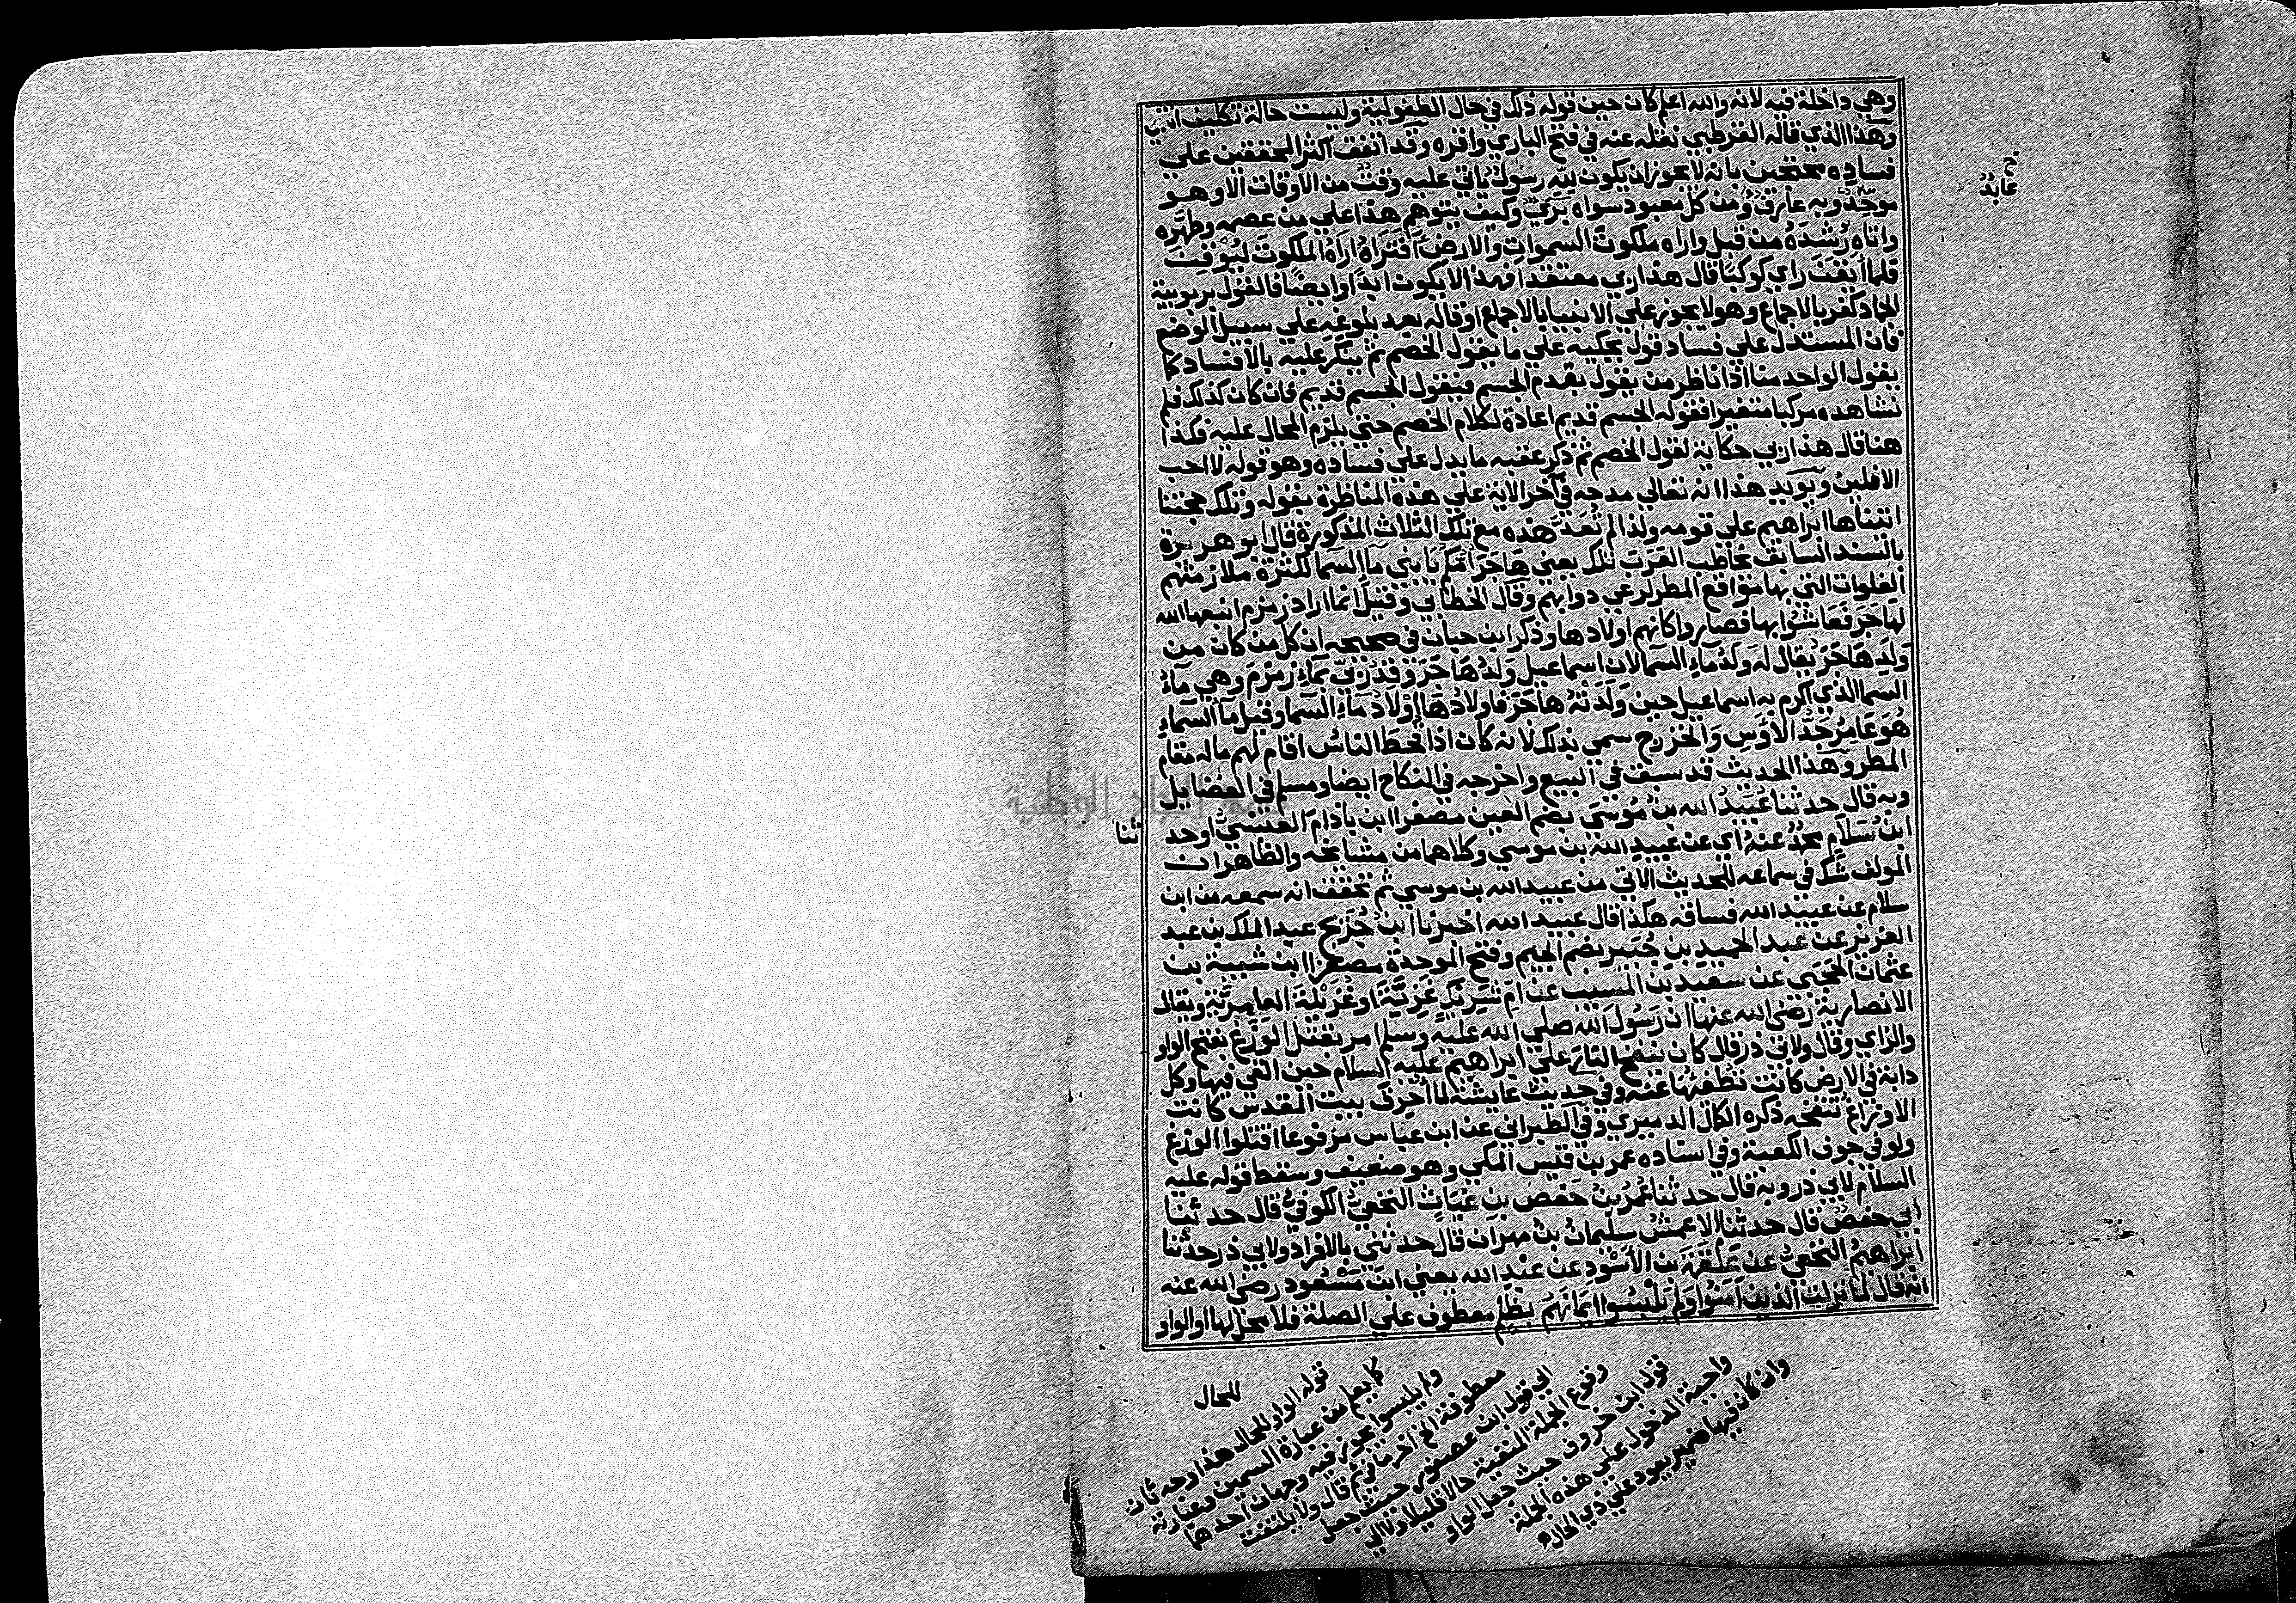 وهي داخلة فيه لانه والله اعلم كان حين قوله ذلك في حال الطفولية وليست حالة تكليف انتهي
وهذا الذي قاله القرطبي نقله عنه في فتح الباري واقره وقد اتفق اكثر المحققين علي
فساده محتجين بانه لا يجوز ان يكون لله رسول ياتي عليه وقت من الاوقات الا وهو
موحد وبه عارف ومن كل معبود سواه بري وكيف يتوهم هذا علي من عصمه وطهره
واتاه رشده من قبل واراه ملكوت السموات والارض افتراه اراه الملكوت ليوقن
فلما ايقن راي كوكبا قال هذا ربي معتقدا فهذا لا يكون ابدا وايضا فالقول بربوبية
الجماد كفر بالاجماع وهو لا يجوز علي الانبيا بالاجماع او قاله بعد بلوغه علي سبيل الوضع
فان المستدل علي فساد قول يحكيه علي ما يقول الخصم ثم ينكر عليه بالافساد كما
يقول الواحد منا اذا ناظر من يقول بقدم الجسم فيقول الجسم قديم فان كان كذلك فلم
نشاهده مركبا متغيرا فقوله الجسم قديم اعادة لكلام الخصم حتي يلزم المحال عليه فكذا
هنا قال هذا ربي حكاية لقول الخصم ثم ذكر عقبه ما يدل علي فساده وهو قوله لا احب
الافلين ويويد هذا انه تعالي مدحه في آخر الاية علي هذه المناظرة بقوله وتلك حجتنا
اتيناها ابراهيم علي قومه ولذا لم تعد هذه مع تلك الثلاث المذكورة قال ابو هريرة
بالسند السابق يخاطب العرب تلك يعني هاجر امكم يا بني مآ السما لكثرة ملازمتهم
الفلوات التي بها مواقع المطر لرعي دوابهم وقال الخطابي وقيل انما اراد زمزم انبعها الله
لهاجر فعاشوا بها فصاروا كانهم اولادها وذكر ابن حبان في صحيحه ان كل من كان من
ولد هاجر يقال له ولد ماء السما لان اسماعيل ولد هاجر وقد ربي بماء زمزم وهي ماء
السما الذي اكرم به اسماعيل حين ولدته هاجر فاولادها اولاد ماء السما وقيل ما السماء
هو عامر جد الاوس والخزرج سمي بذلك لانه كان اذا قحط الناس اقام لهم ماله مقام
المطر وهذا الحديث قد سبق في البيع واخرجه في النكاح ايضا ومسلم في الفضايل
وبه قال حدثنا عبيد الله بن موسي بضم العين مصغرا ابن باذام العبسي او حد
ثنا
ابن سلام محمد عنه اي عن عبيد الله بن موسي وكلاهما من مشايخه والظاهر ان
المولف شك في سماعه للحديث الاتي من عبيد الله بن موسي ثم تحقق انه سمعه من ابن
سلام عن عبيد الله فساقه هكذا قال عبيد الله اخبرنا ابن جريج عبد الملك بن عبد
العزيز عن عبد الحميد بن جبير بضم الجيم وفتح الموحدة مصغرا ابن شيبة بن
عثمان الحجبي عن سعيد بن المسيب عن ام شريك غزية او غزيلة العامرية ويقال
الانصارية رضي الله عنها ان رسول الله صلي الله عليه وسلم امر بقتل الوزغ بفتح الواو
والزاي وقال ولابي ذر قال كان ينفخ النار علي ابراهيم عليه السلام حين القي فيها وكل
دابة في الارض كانت تطفئها عنه وفي حديث عايشة لما احرق بيت المقدس كانت
الاوزاغ تنفخه ذكره الكمال الدميري وفي الطبراني عن ابن عباس مرفوعا اقتلوا الوزغ
ولو في جوف الكعبة وفي اسناده عمر بن قيس المكي وهو ضعيف وسقط قوله عليه
السلام لابي ذر وبه قال حدثنا عمر بن حفص بن غياث النخعي الكوفي قال حدثنا
ابي حفص قال حدثنا الاعمش سليمان بن مهران قال حدثني بالافراد ولابي ذر حدثنا
ابراهيم النخعي عن علقمة بن الاسود عن عبد الله يعني ابن مسعود رضي الله عنه
انه قال لما نزلت الذين آمنوا ولم يلبسوا ايمانهم بظلم معطوف علي الصلة فلا محل لها او الواو
للحال
قوله الواو للحال هذا وجه ثان
كما يعلم من عبارة السمين وعبارته
ولم يلبسوا يجوز فيه وجهان احدهما
معطوفة الخ اخرها ثم قال ولا يلتفت
الي قول ابن عصفور حيث جعل
وقوع الجملة المنفية حالا قليلا ولا الي
قول ابن خروف حيث جعل الواو
واجبة الدخول علي هذه الجملة
وان كان فيها ضمير يعود علي ذي الحال